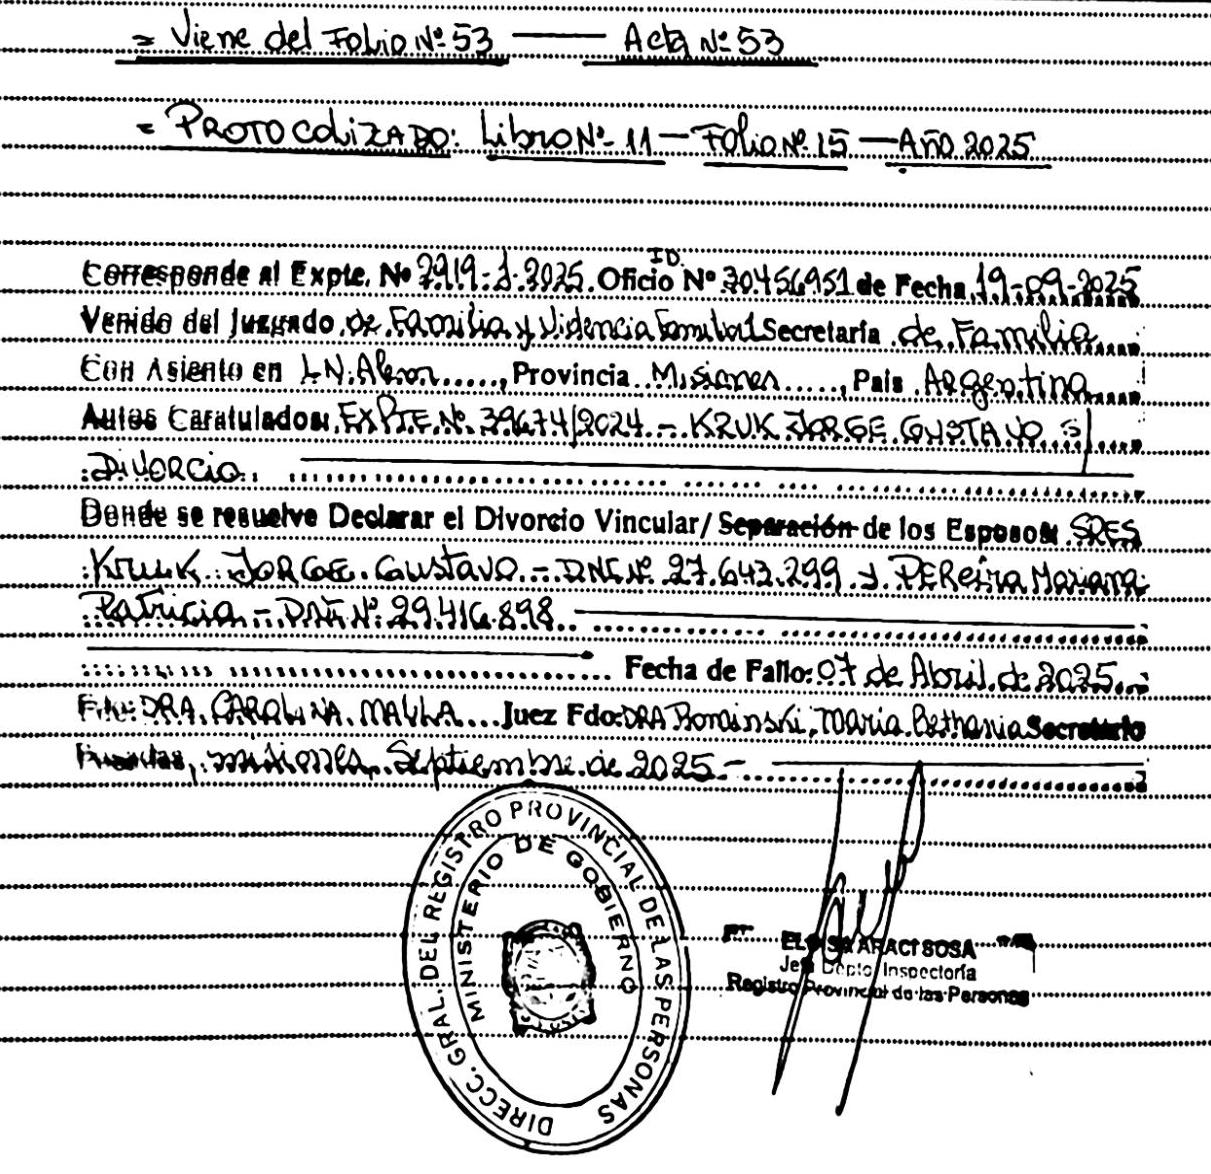 = Viene del Folio Nº 53 — Acta Nº 53
= PROTOCOLIZADO: Libro Nº 11 — Folio Nº 15 — Año 2025
ID.
Corresponde al Expte. Nº 7919-J-2025. Oficio Nº 30456951 de Fecha 19-09-2025
Venido del Juzgado de Familia y Violencia Familiar Secretaría de Familia
Con Asiento en L.N. Alem, Provincia Misiones, País Argentina
Autos Caratulados: EXPTE. Nº 39674/2024 - KRUK JORGE GUSTAVO S/
DIVORCIO.
Donde se resuelve Declarar el Divorcio Vincular/ Separación de los Esposos: SRES
KRUK JORGE Gustavo - DNI Nº 27.643.299 y PEREIRA Mariana
Patricia - DNI Nº 29.416.898
Fecha de Fallo: 07 de Abril de 2025
Fdo: DRA. CAROLINA MALLA Juez Fdo: DRA María Bethania Secretario
Posadas, misiones, Septiembre de 2025 -
DIRECC. GRAL. DEL REGISTRO PROVINCIAL DE LAS PERSONAS
MINISTERIO DE GOBIERNO
ARACI SOSA
Jefa Depto. Inspectoría
Registro Provincial de las Personas